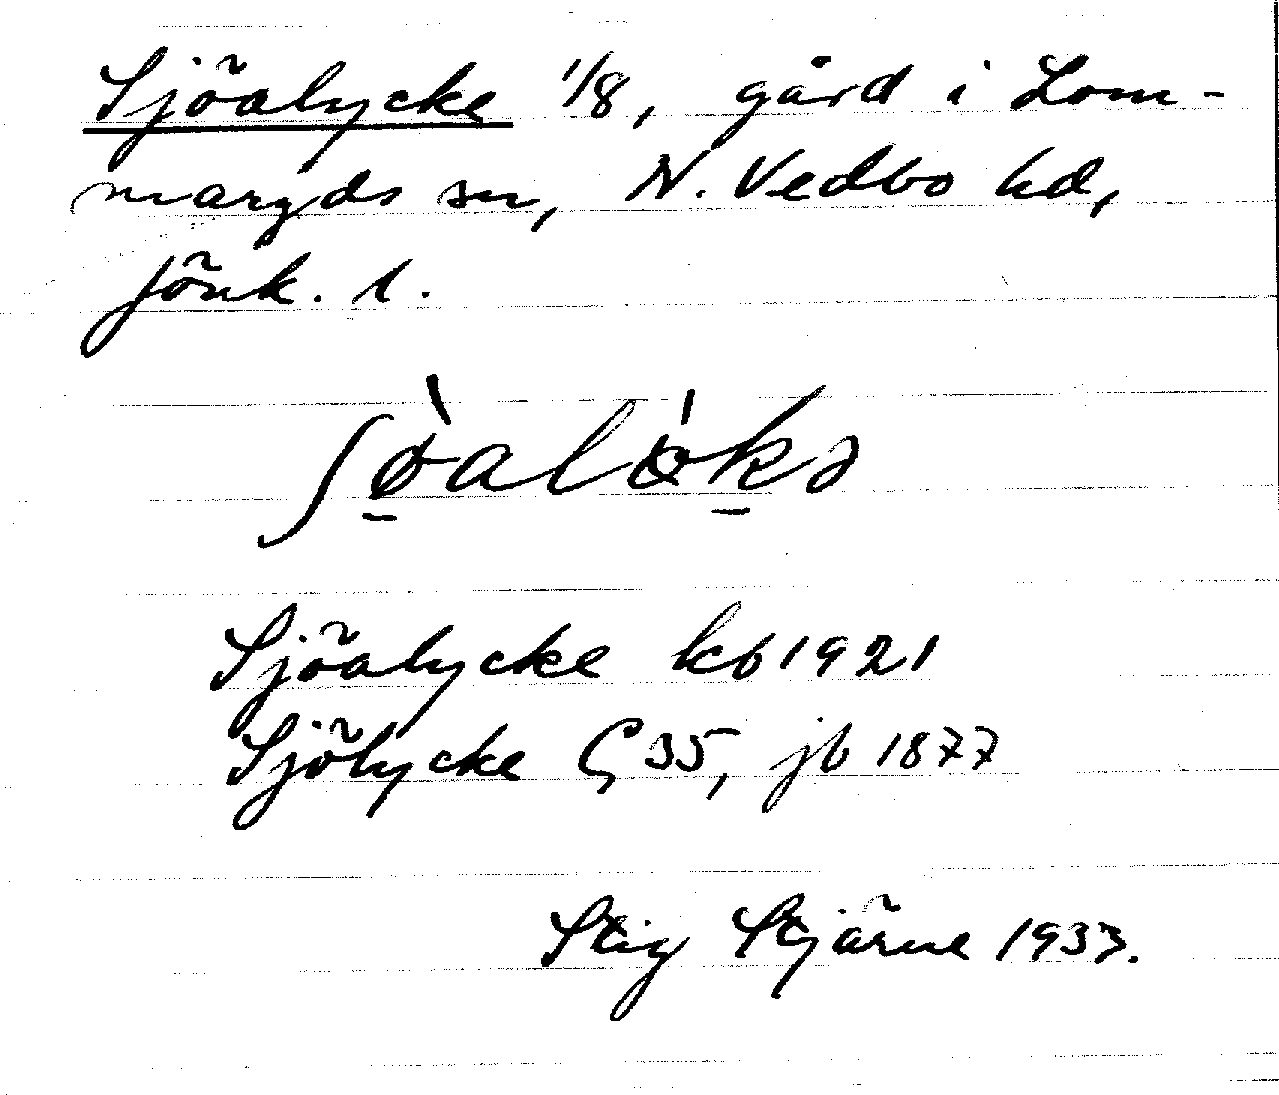 Sjöalycke 1/8, gård i Lom-
maryds sn, N. Vedbo hd,
Jönk. l.
ʃø̠̀alö́k̠ə
Sjöalycke kb 1921
Sjölycke G 35, jb 1877
Stig Stjärne 1933.